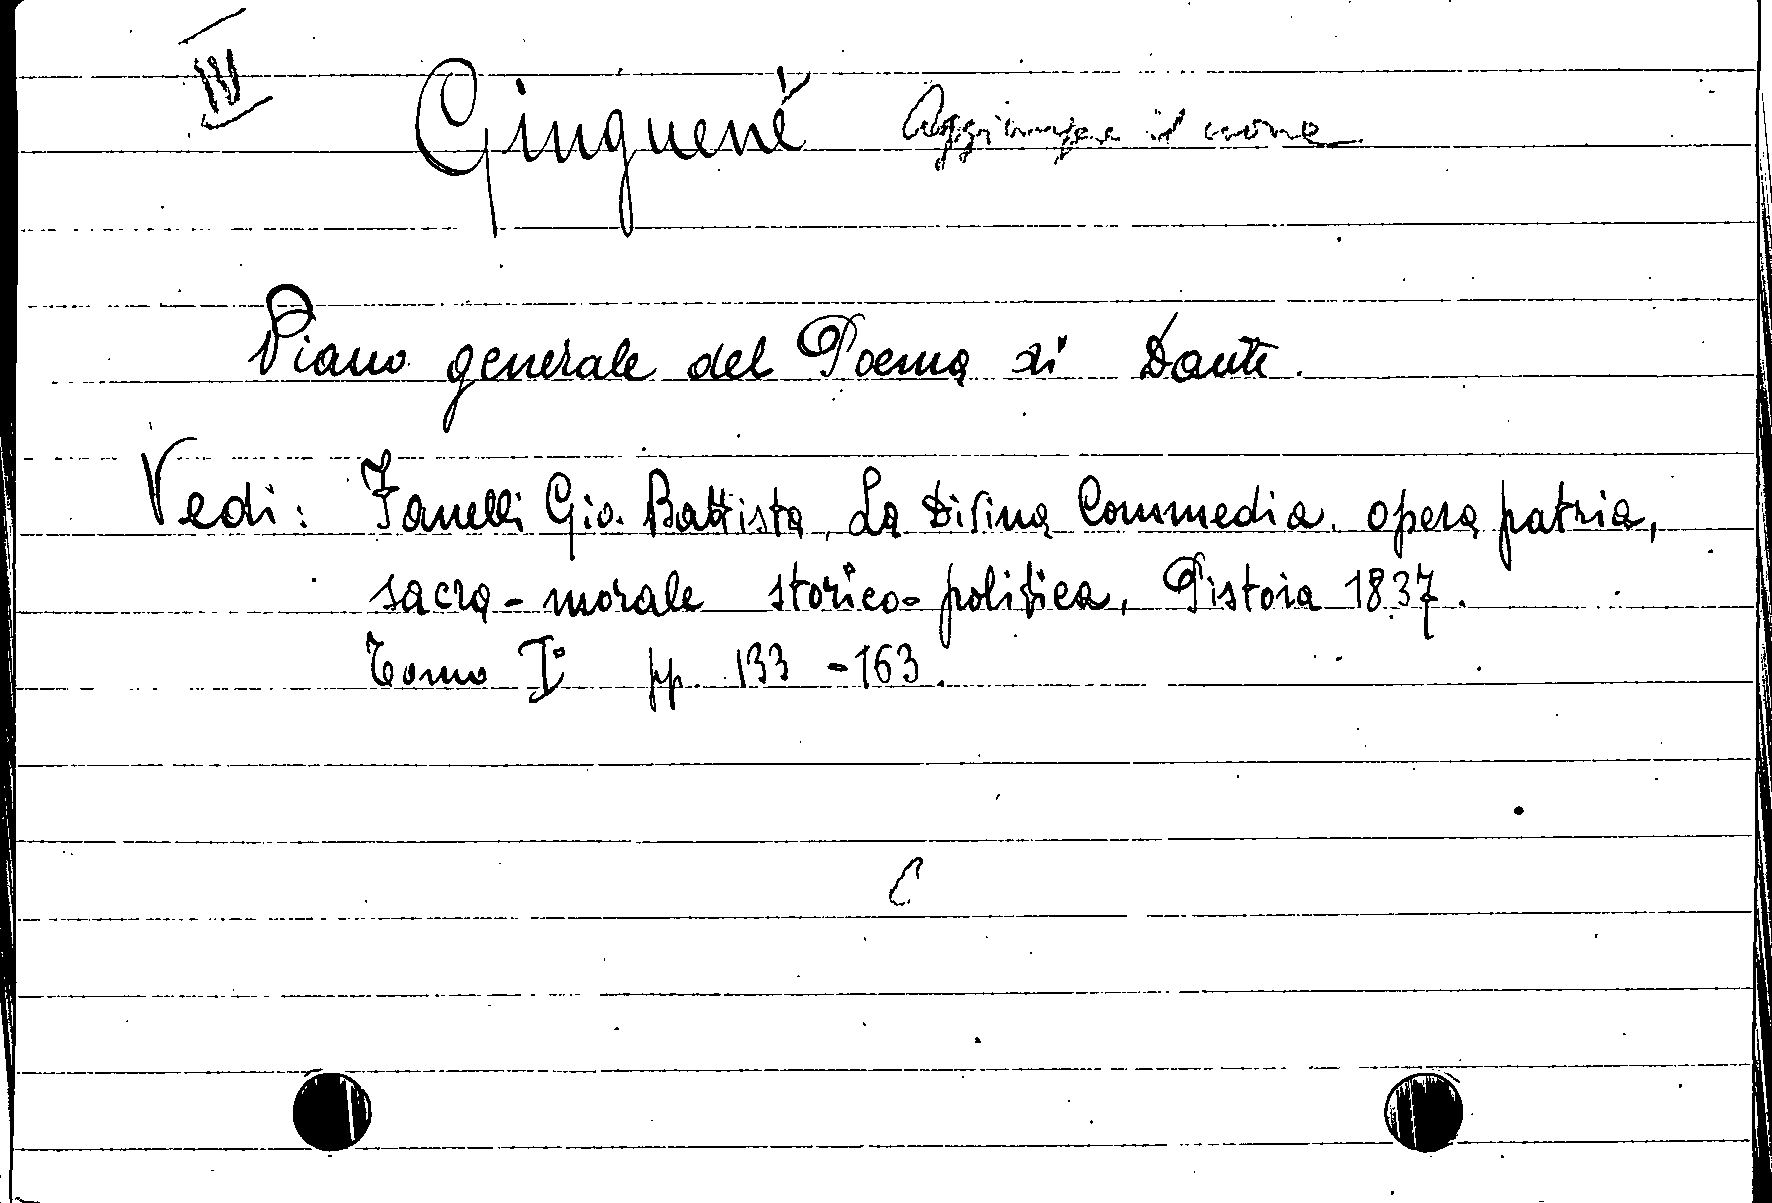 IV
Ginguené Aggiungere il nome
Piano generale del Poema di Dante.
Vedi: Fanelli Gio. Battista, La Divina Commedia. opera patria,
sacra-morale storico-politica, Pistoia 1837.
Tomo I° pp. 133-163.
C